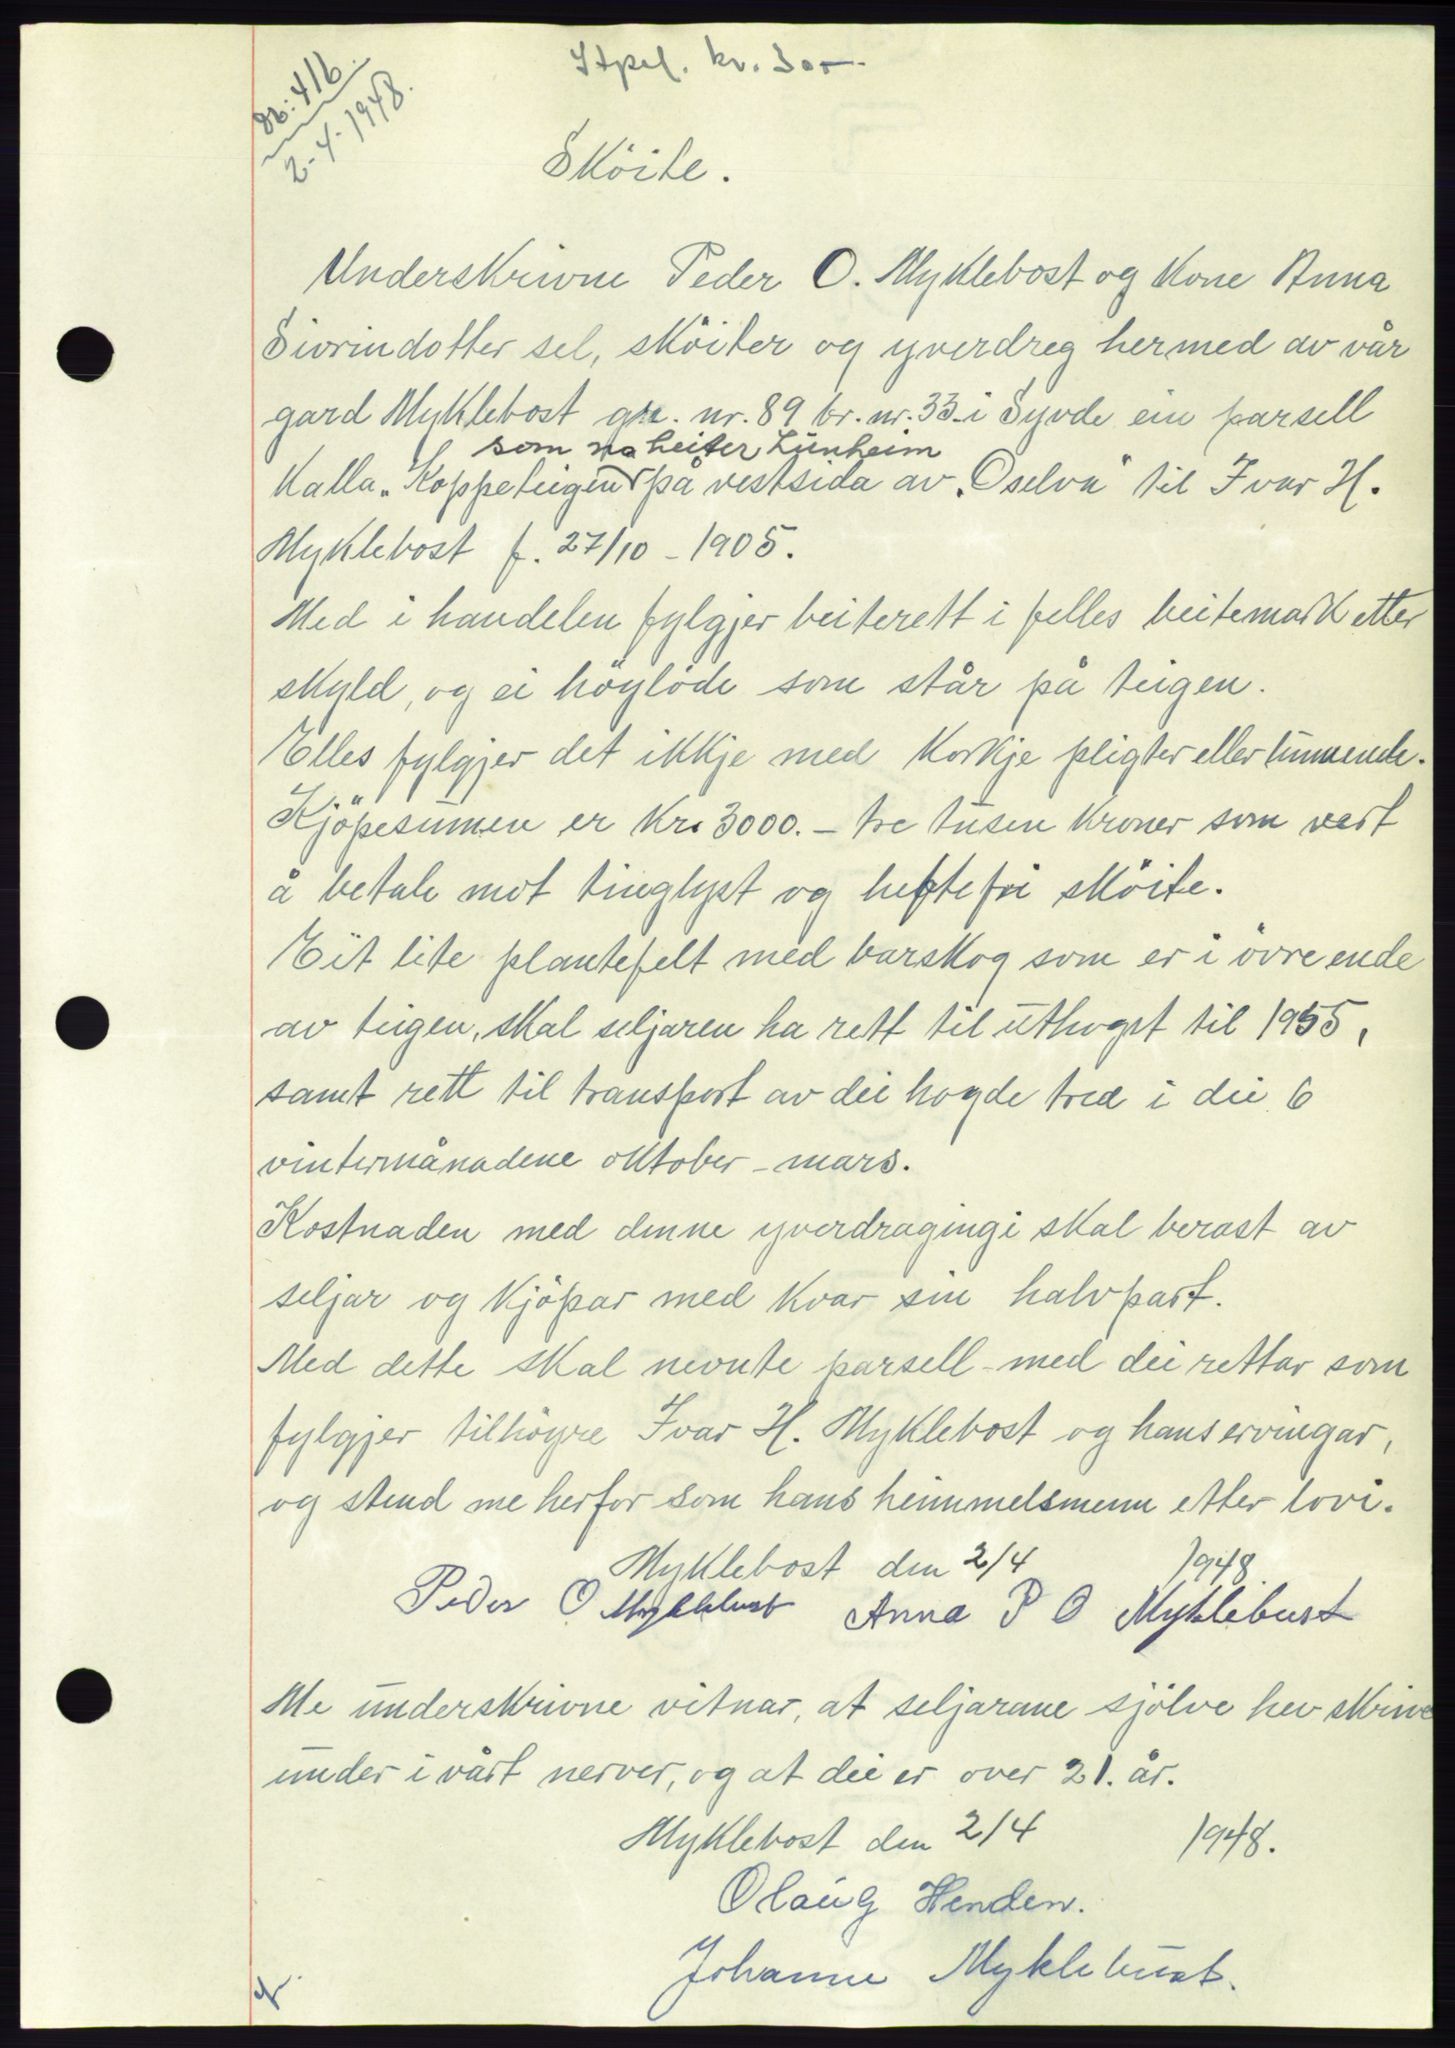 Stpel. kr. 30.-
nr: 416.
2-4-1948.
Sköite.
Underskrivne Peder O. Myklebost og kone Anna
Sivrindotter sel, sköiter og yverdreg hermed av vår
gard Myklebost gr. nr. 89 br. nr. 33 i Syvde ein parsell
som no heiter Lunheim
kalla „Koppeteigen" på vestsida av „Oselva" til Ivar H.
Myklebost f. 27/10 - 1905.
Med i handelen fylgjer beiterett i felles beitemark etter
skyld, og ei höylöde som står på teigen.
Elles fylgjer det ikkje med korkje pligter eller lunnende.
Kjöpesumen er kr. 3000.- tre tusen kroner som vert
å betale mot tinglyst og heftefri sköite.
Eit lite plantefelt med barskog som er i övre ende
av teigen, skal seljaren ha rett til uthogst til 1955,
samt rett til transport av dei hogde trea i dei 6
vintermånadene oktober - mars.
Kostnaden med denne yverdragingi skal berast av
seljar og kjöpar med kvar sin halvpart.
Med dette skal nevnte parsell - med dei rettar som
fylgjer tilhöyre Ivar H. Myklebost og hans ervingar,
og stend me herfor som hans heimmelsmenn etter lovi.
Myklebost den 2/4 1948
Peder O Myklebust Anna P O Myklebust
Me underskrivne vitnar, at seljarane sjölve hev skrive
under i vårt nerver, og at dei er over 21. år.
Myklebost den 2/4 1948.
Olaug Henden.
Johanne Myklebust.